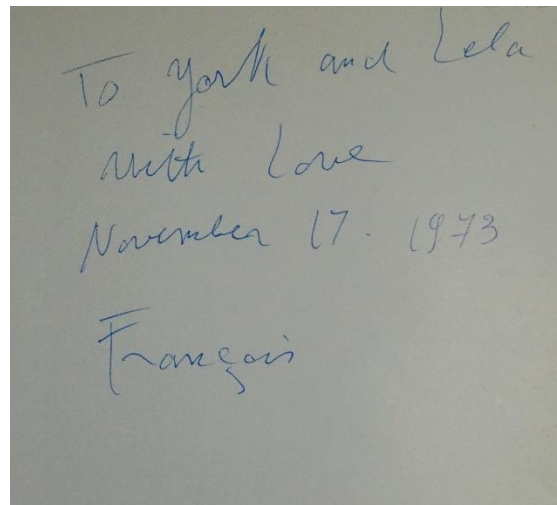 To York and Lela
with Love
November 17. 1973
François